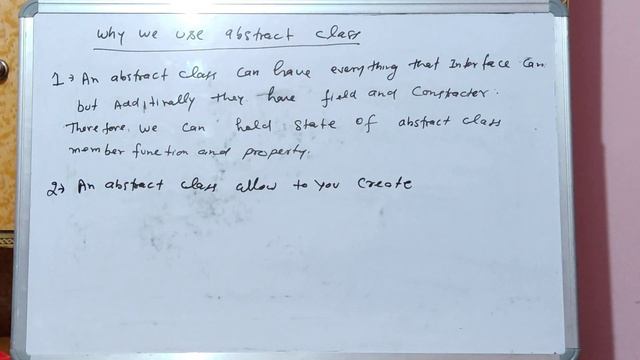 why we use abstract class
1→ An abstract class can have everything that Interface can
but Additinally they have field and Constracter.
Therefore we can hold state of abstract class
member function and property.
2→ An abstract class allow to you create